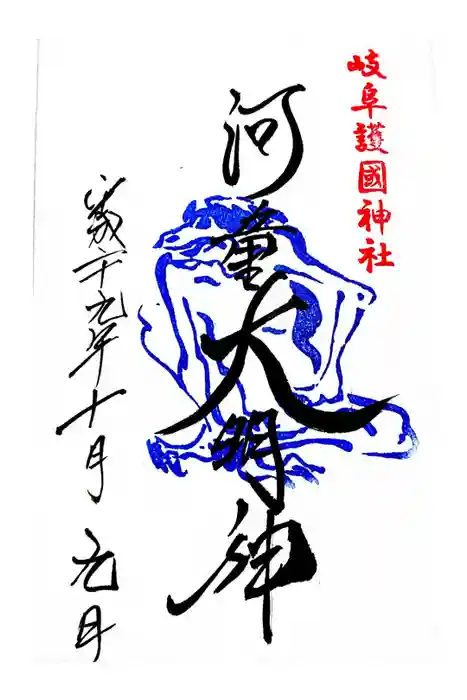 岐阜護國神社
河童大明神
平成二十九年十月元日